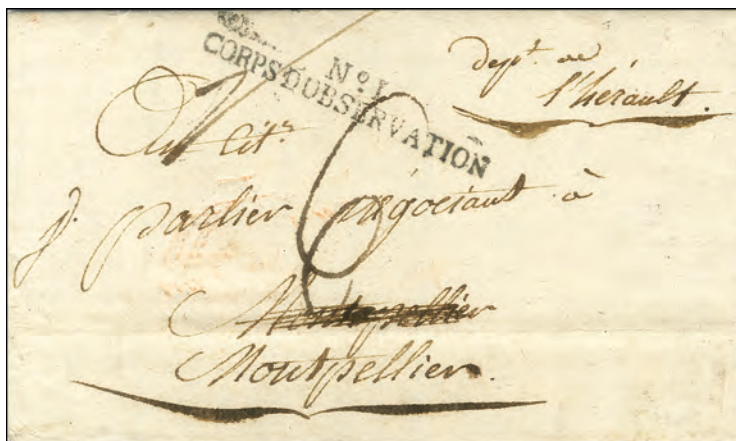 N° 1
CORPS D'OBSERVATION
dept. de
l'hérault.
Au Citn.
j. parlier négociant à
Montpellier
Montpellier.